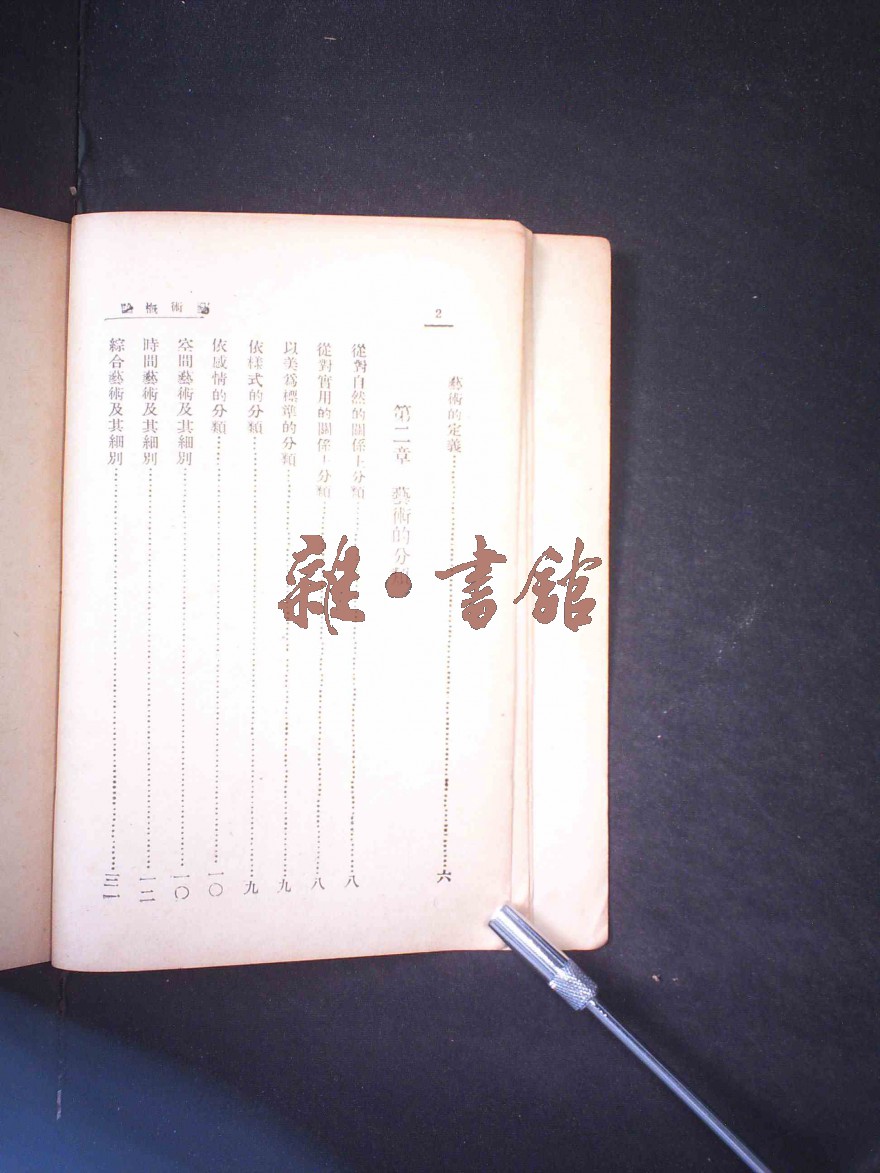 2
藝術概論
藝術的定義……六
第二章　藝術的分類
從對自然的關係上分類……八
從對實用的關係上分類……八
以美爲標準的分類……九
依樣式的分類……九
依感情的分類……一〇
空間藝術及其細別……一〇
時間藝術及其細別……一二
綜合藝術及其細別……三一
雜·書館